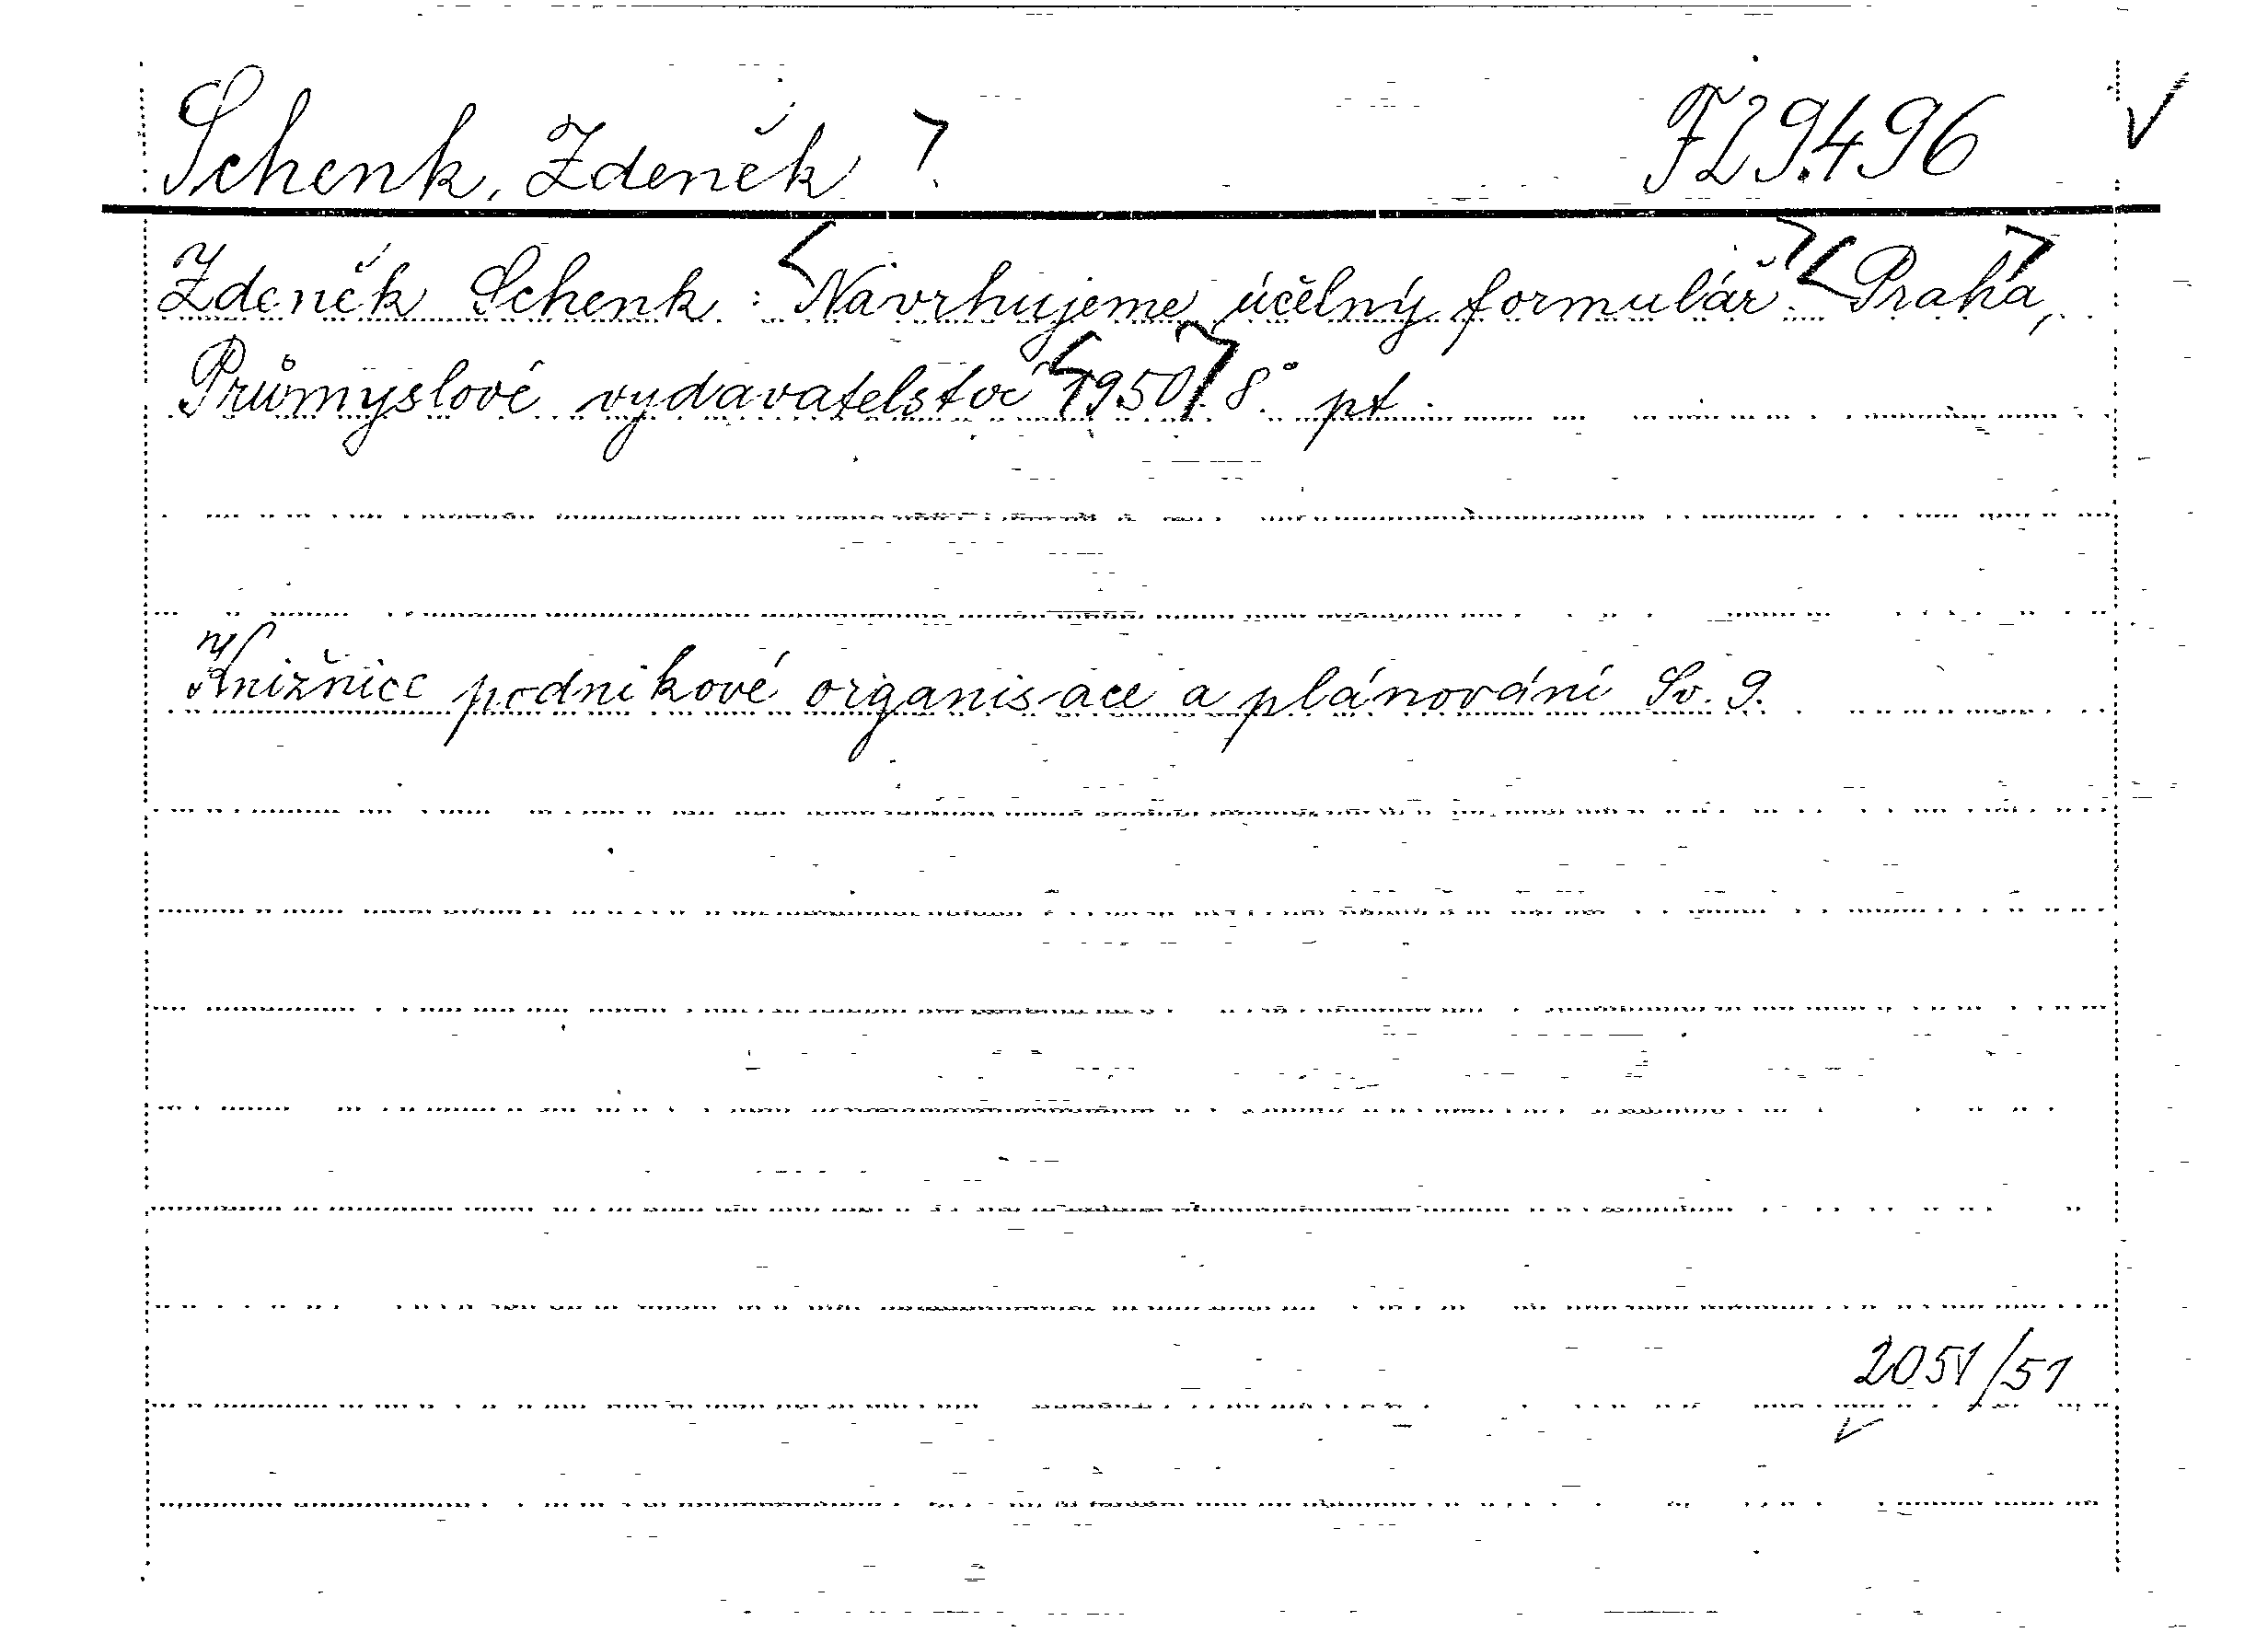 Schenk, Zdeněk F29.496
Zdeněk Schenk : Navrhujeme účelný formulář. Praha,
Průmyslové vydavatelství 1950 8° pt
Knižnice podnikové organisace a plánování Sv. 9.
2051/51